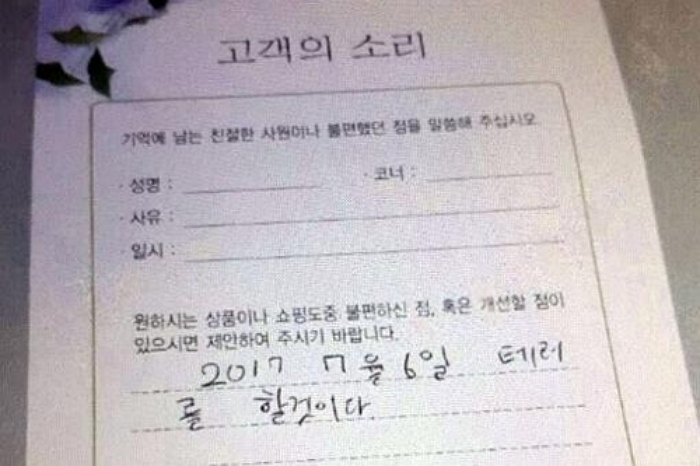 고객의 소리
기억에 남는 친절한 사원이나 불편했던 점을 말씀해 주십시오
· 성명 : · 코너 :
· 사유 :
· 일시 :
원하시는 상품이나 쇼핑도중 불편하신 점, 혹은 개선할 점이
있으시면 제안하여 주시기 바랍니다.
2017 7월 6일 테러
를 할것이다.